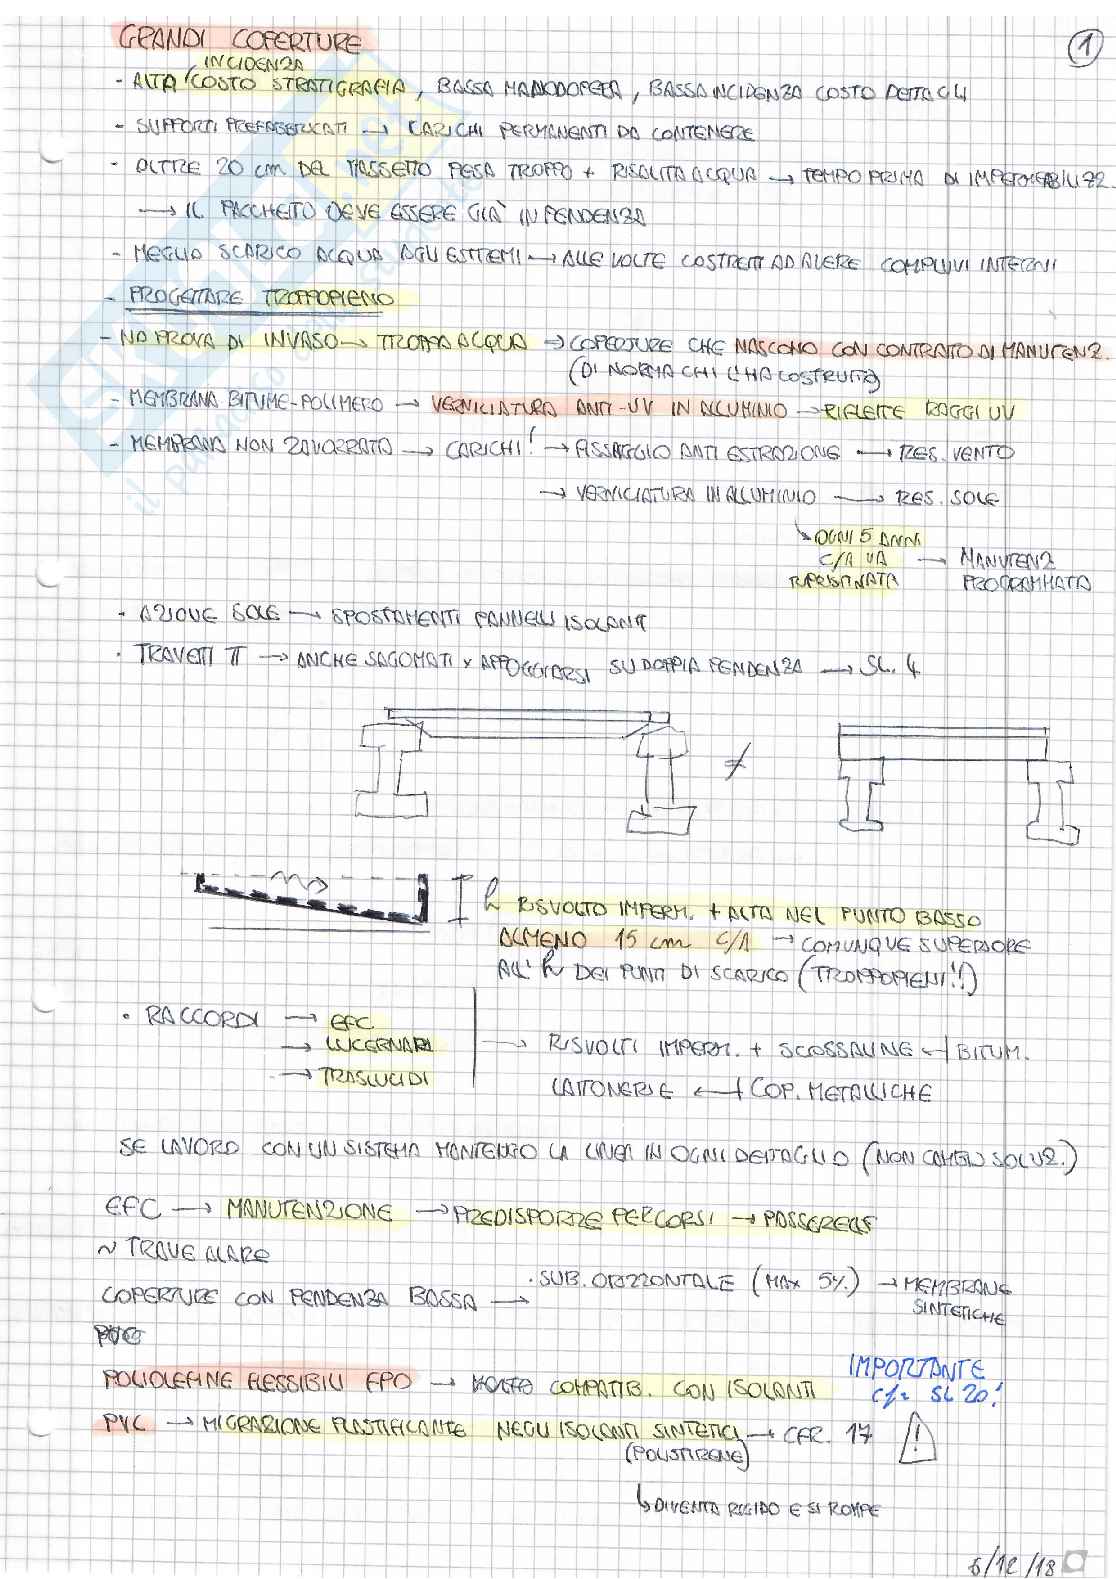 GRANDI COPERTURE
1
- ALTA INCIDENZA COSTO STRATIGRAFIA, BASSA MANODOPERA, BASSA INCIDENZA COSTO DETTAGLI
- SUPPORTI PREFABBRICATI → CARICHI PERMANENTI DA CONTENERE
- OLTRE 20 cm DEL MASSETTO PESA TROPPO + RISALITA ACQUA → TEMPO PRIMA DI IMPERMEABILIZZ.
→ IL PACCHETTO DEVE ESSERE GIÀ IN PENDENZA
- MEGLIO SCARICO ACQUA AGLI ESTREMI → ALLE VOLTE COSTRETTI AD AVERE COMPLUVI INTERNI
- PROGETTARE TROPPOPIENO
- NO PROVA DI INVASO → TROPPA ACQUA → COPERTURE CHE NASCONO CON CONTRATTO DI MANUTENZ.
(DI NORMA CHI L'HA COSTRUITA)
- MEMBRANA BITUME-POLIMERO → VERNICIATURA ANTI-UV IN ALLUMINIO → RIFLETTE RAGGI UV
- MEMBRANA NON ZAVORRATA → CARICHI! → FISSAGGIO ANTI ESTRAZIONE → RES. VENTO
→ VERNICIATURA IN ALLUMINIO → RES. SOLE
↘ OGNI 5 ANNI
C/A VA → MANUTENZ
RIPRISTINATA PROGRAMMATA
· AZIONE SOLE → SPOSTAMENTI PANNELLI ISOLANTI
· TRAVETTI TT → ANCHE SAGOMATI x APPOGGIARSI SU DOPPIA PENDENZA → SL. 4
≠
h RISVOLTO IMPERM. + ALTA NEL PUNTO BASSO
ALMENO 15 cm C/A → COMUNQUE SUPERIORE
ALL'h DEI PUNTI DI SCARICO (TROPPOPIENI!!)
· RACCORDI → EFC
→ LUCERNARI → RISVOLTI IMPERM. + SCOSSALINE ← BITUM.
→ TRASLUCIDI
LATTONERIE ← COP. METALLICHE
SE LAVORO CON UN SISTEMA MANTENGO LA LINEA IN OGNI DETTAGLIO (NON CAMBIO SOLUZ.)
EFC → MANUTENZIONE → PREDISPORRE PERCORSI → PASSERELLE
~ TRAVE ALARE
COPERTURE CON PENDENZA BASSA → · SUB. ORIZZONTALE (MAX 5%) → MEMBRANE
SINTETICHE
PVC
POLIOLEFINE FLESSIBILI FPO → MOLTO COMPATIB. CON ISOLANTI
IMPORTANTE
cfr SL 20!
PVC → MIGRAZIONE PLASTIFICANTE NEGLI ISOLANTI SINTETICI → CFR. 17 !
(POLISTIRENE)
↳ DIVENTA RIGIDO E SI ROMPE
5/12/18